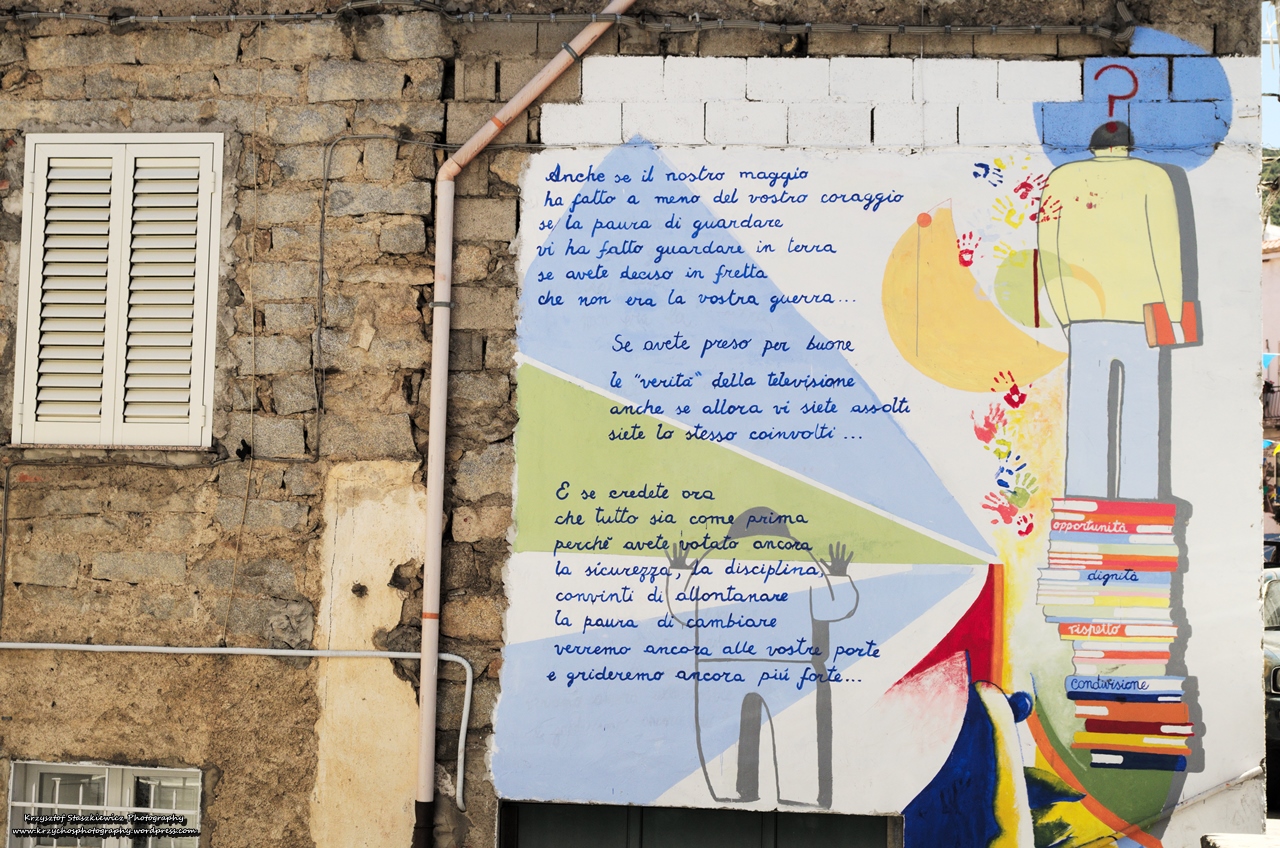 ?
Anche se il nostro maggio
ha fatto a meno del vostro coraggio
se la paura di guardare
vi ha fatto guardare in terra
se avete deciso in fretta
che non era la vostra guerra...
Se avete preso per buone
le "verità" della televisione
anche se allora vi siete assolti
siete lo stesso coinvolti ...
E se credete ora
che tutto sia come prima
perchè avete votato ancora
la sicurezza, la disciplina,
convinti di allontanare
la paura di cambiare
verremo ancora alle vostre porte
e grideremo ancora più forte...
opportunità
dignità
rispetto
condivisione
Krzysztof Staszkiewicz Photography
www.krzychosphotography.wordpress.com